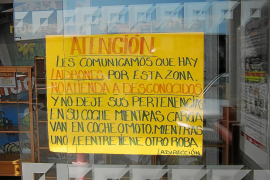 ATENCIÓN!
LES COMUNICAMOS QUE HAY
LADRONES POR ESTA ZONA.
NO ATIENDA A DESCONOCIDOS
Y NO DEJE SUS PERTENENCIAS
EN SU COCHE MIENTRAS CARGA
VAN EN COCHE O MOTO. MIENTRAS
UNO LE ENTRETIENE OTRO ROBA
LA DIRECCIÓN